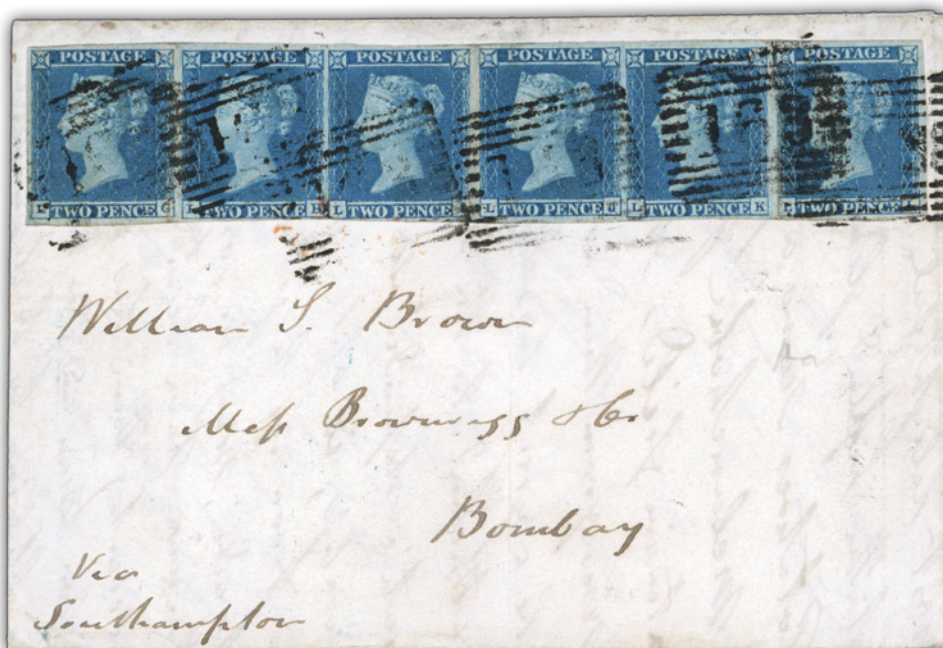 POSTAGE POSTAGE POSTAGE POSTAGE POSTAGE POSTAGE
TWO PENCE G TWO PENCE L TWO PENCE L TWO PENCE L TWO PENCE K TWO PENCE
William S. Brown
Mess Brownrigg & Co
Bombay
Via
Southampton